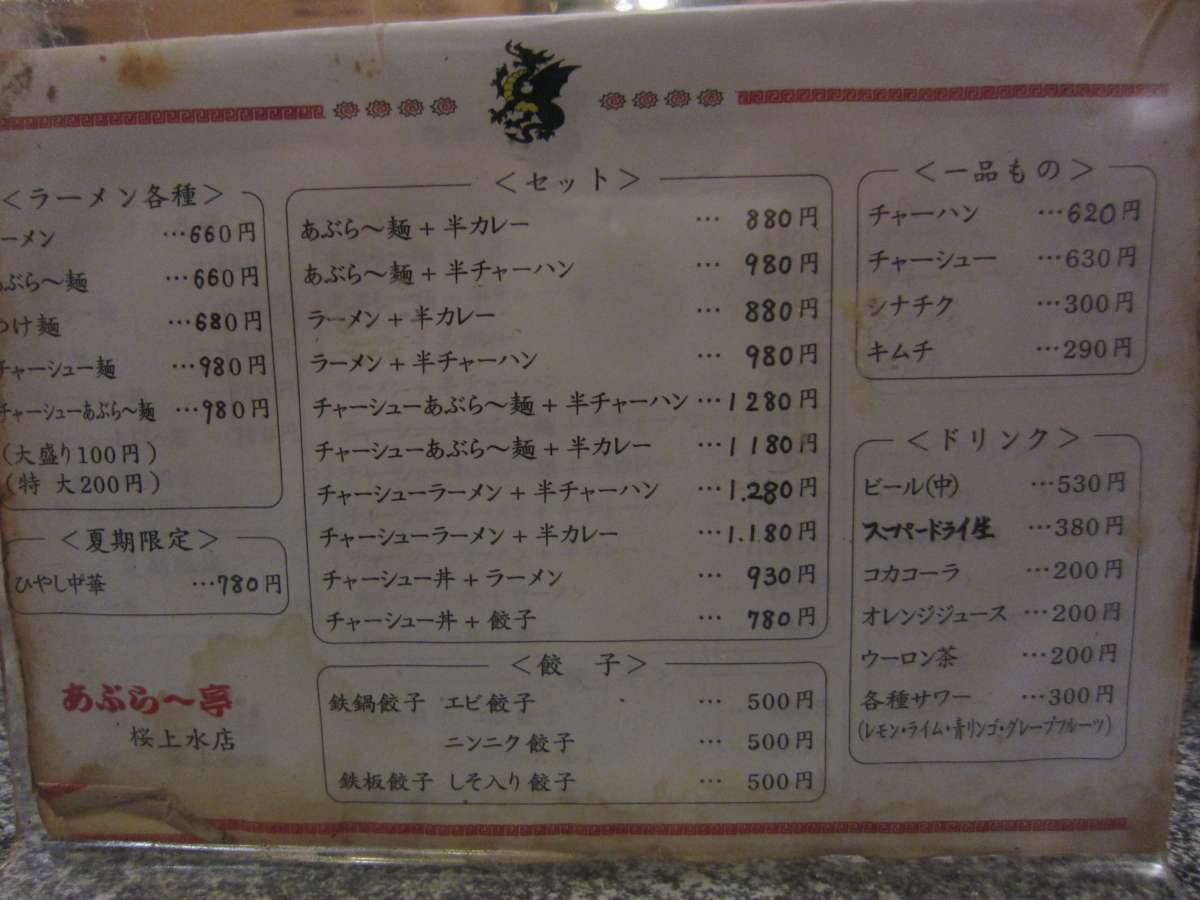 ＜ラーメン各種＞
ーメン …660円
ぶら〜麺 …660円
つけ麺 …680円
チャーシュー麺 …980円
チャーシューあぶら〜麺 …980円
（大盛り100円）
（特 大200円）
＜夏期限定＞
ひやし中華 …780円
あぶら〜亭
桜上水店
＜セット＞
あぶら〜麺 + 半カレー … 880円
あぶら〜麺 + 半チャーハン … 980円
ラーメン + 半カレー … 880円
ラーメン + 半チャーハン … 980円
チャーシューあぶら〜麺 + 半チャーハン …1280円
チャーシューあぶら〜麺 + 半カレー …1180円
チャーシューラーメン + 半チャーハン …1.280円
チャーシューラーメン + 半カレー …1.180円
チャーシュー丼 + ラーメン … 930円
チャーシュー丼 + 餃子 … 780円
＜餃 子＞
鉄鍋餃子 エビ餃子 … 500円
ニンニク餃子 … 500円
鉄板餃子 しそ入り餃子 … 500円
＜一品もの＞
チャーハン …620円
チャーシュー …630円
シナチク …300円
キムチ …290円
＜ドリンク＞
ビール(中) …530円
スーパードライ生 …380円
コカコーラ …200円
オレンジジュース …200円
ウーロン茶 …200円
各種サワー …300円
(レモン・ライム・青リンゴ・グレープフルーツ)